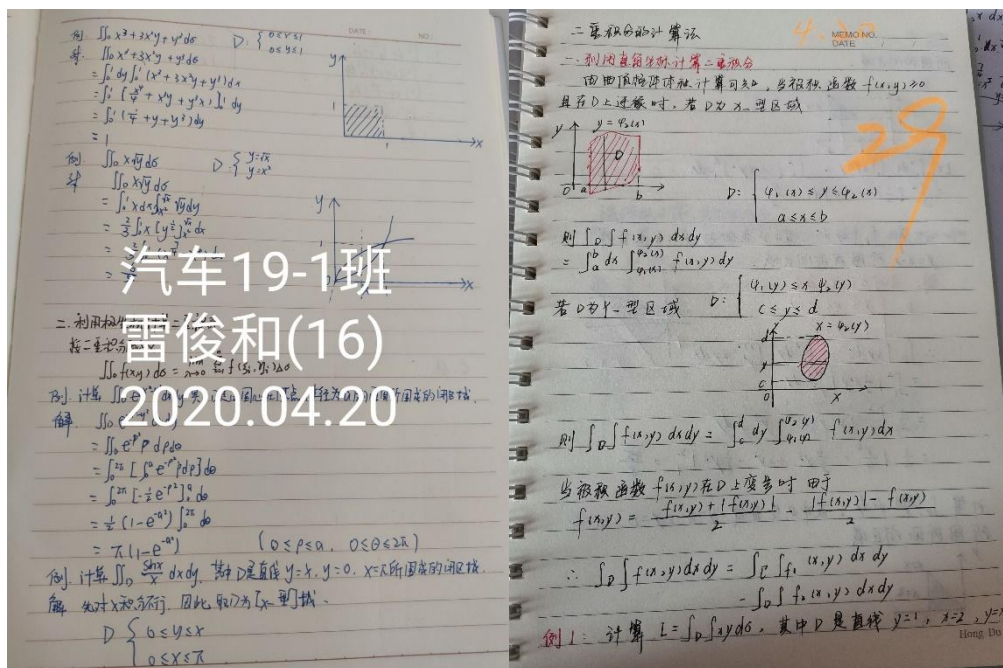 例. ∬_D x³+3x²y+y³dσ D: { 0≤x≤1
0≤y≤1
解. ∬_D x³+3x²y+y³dσ
=∫₀¹dy∫₀¹(x³+3x²y+y³)dx
=∫₀¹[x⁴/4+x³y+y³x]₀¹dy
=∫₀¹(1/4+y+y³)dy
= 1
例 ∬_D x√y dσ D: { y=√x
y=x²
解 ∬_D x√y dσ
=∫₀¹xdx∫_{x²}^{√x}√y dy
=2/3∫₀¹x[y^{3/2}]_{x²}^{√x}dx
汽车19-1班
雷俊和(16)
2020.04.20
二.利用极
∬_D f(x,y)dσ =
例. 计算
解
=∬_D e^{-ρ²}ρ dρdθ
=∫₀^{2π}[∫₀^a e^{-ρ²}ρdρ]dθ
=∫₀^{2π}[-½e^{-ρ²}]₀^a dθ
=½(1-e^{-a²})∫₀^{2π}dθ
=π(1-e^{-a²}) (0≤ρ≤a, 0≤θ≤2π)
例. 计算∬_D sinx/x dxdy, 其中D是直线y=x, y=0, x=π所围成的闭区域.
解 先对x积分不行, 因此, 取D为[x-型]域.
D { 0≤y≤x
0≤x≤π
MEMO NO.
DATE
二重积分的计算法
一.利用直角坐标计算二重积分
由曲顶柱体体积计算可知, 当被积函数f(x,y)≥0
且在D上连续时, 若D为X-型区域
29
y y=φ₂(x)
D
0 a b
D: { φ₁(x)≤y≤φ₂(x)
a≤x≤b
则∫_D∫f(x,y)dxdy
=∫_a^b dx∫_{φ₁(x)}^{φ₂(x)} f(x,y)dy
若D为Y-型区域 D: { φ₁(y)≤x φ₂(y)
c≤y≤d
x=φ₂(y)
d
y
c
0 x
则∫_D∫f(x,y)dxdy=∫_c^d dy∫_{φ₁(y)}^{φ₂(y)} f(x,y)dx
当被积函数f(x,y)在D上变号时 由于
f(x,y)= f(x,y)+|f(x,y)|/2 - |f(x,y)|-f(x,y)/2
∴ ∫_D∫f(x,y)dxdy=∫_D∫f₁(x,y)dxdy
-∫_D∫f₂(x,y)dxdy
例1: 计算I=∫_D∫xydσ, 其中D是直线y=1, x=2, y=